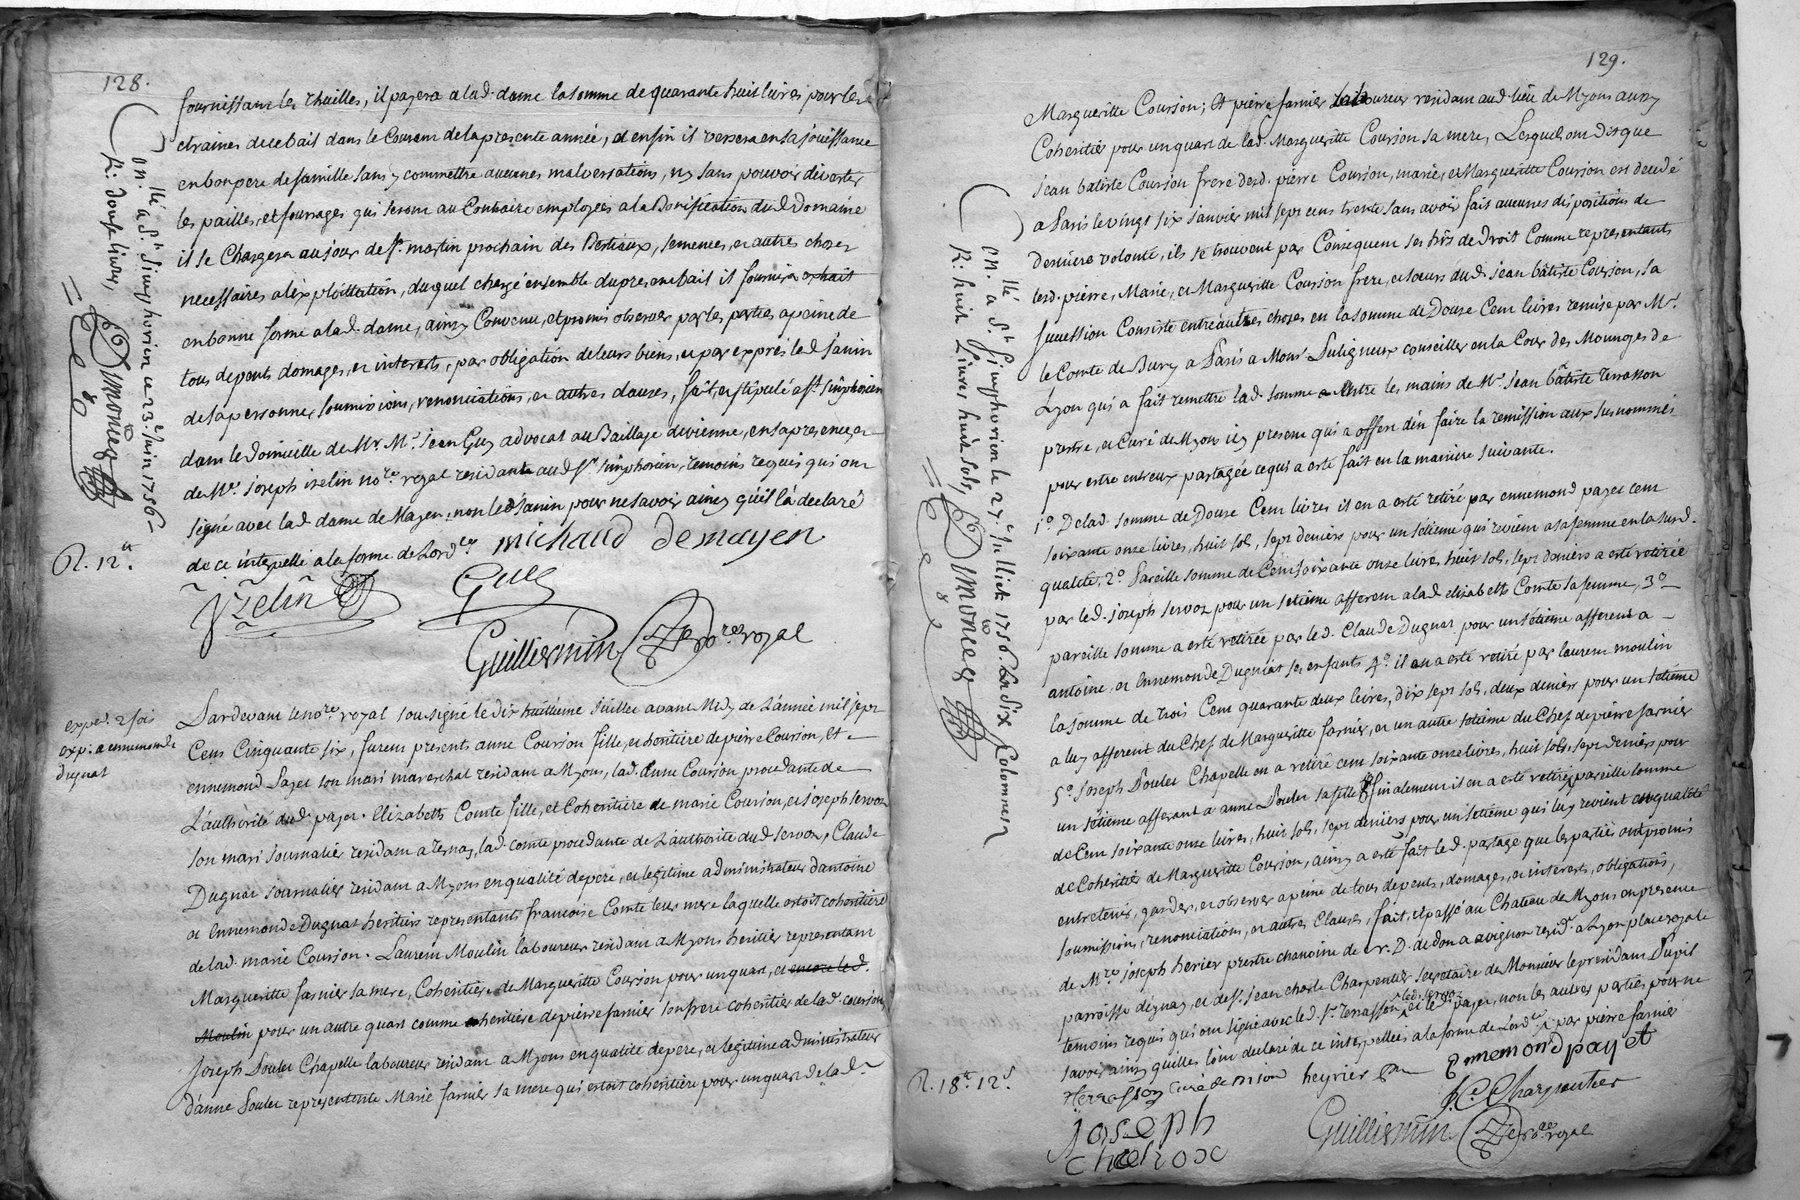 128.
fournissant les thuilles, il payera a lad. dame la somme de quarante huit livres pour les
etraines de ce bail dans le Courant de la presente année, et enfin il versera en sa jouissance
en bon pere de famille sans y commettre aucunes malversations, ny sans pouvoir divertir
les pailles, et fourrages qui seront au Contraire employees a la Bonification dud. Domaine
il se Chargera au jour de St. martin prochain des Bestiaux, semences, et autres choses
necessaires a lexploittation, duquel chargé ensemble du present bail il fournira extrait
en bonne forme a lad. dame, ainsy Convenu, et promis observer par les parties a peine de
tous depents domages, et interests, par obligation de leurs biens, et par exprès led. Janin
de sa personne, soumissions, renonciations, et autres clauses, fait, et stipulé a St. simphorien
dans le domicille de Mr. Me. jean Guy advocat au Baillage de vienne, en sa presence, et
de Me. joseph izelin nore. royal residante aud. St. simphorien, temoins requis qui ont
signé avec lad. dame de Mayen, non led. Janin pour ne savoir ainsy qu'il l'a declaré
de ce interpellé a la forme de Lord.ce michaud demayen
yzelin Guy
Guilliermin nore. royal
on. llé a St. Simphorien ce 23e. Juin 1756
R: douse livres,
Dimonet
R. 12 lt.
exped. 2 fois
exp: a ennemonde
dugnat
Pardevant le nore. royal sousigné le dix huittieme juillet avant Midy de L'année mil sept
Cens Cinquante six, furent presents anne Courson fille, et heritiere de pierre Courson, et
ennemond Payet son mari marechal residant a Myons, lad. Anne Courson procedante de
L'authorité dud. payet. Elizabeth Comte fille, et Coheritiere de marie Courson, et joseph servoz
son mari journalier residant a ternay, lad. comte procedante de L'authorité dud. servoz, Claude
Dugnat journalier residant a Myons en qualité de pere, et legitime administrateur d'antoine
et Ennemonde Dugnat heritiers representants francoise Comte leur mere laquelle estoit coheritiere
de lad. marie Courson. Laurent Moulin laboureur residant a Myons heritier representant
Margueritte farnier sa mere, Coheritiere de Margueritte Courson pour un quart, et encore led.
Moulin pour un autre quart comme coheritiere de pierre farnier son frere coheritier de lad. courson,
Joseph Boulet Chapelle laboureur residant a Myons en qualité de pere, et legitime administrateur
d'anne Boulet representente Marie farnier sa mere qui estoit coheritiere pour un quart de lad.
129.
Margueritte Courson; Et pierre farnier laboureur residant aud. lieu de Myons aussy
Coheritier pour un quart de lad. Margueritte Courson sa mere, Lesquels ont dit que
jean batiste Courson frere desd. pierre Courson, marie, et Margueritte Courson est decedé
a Paris le vingt six janvier mil sept cens trente sans avoir fait aucunes dispositions de
derniere volonté, ils se trouvent par Consequent ses hers de droit Comme representants
lesd. pierre, Marie, et Margueritte Courson frere, et sœurs dud. jean bâtiste Courson, sa
succession Consiste entre autres choses en la somme de Douse Cent livres remise par Mr.
le Comte de Bury a Paris a Monsr Puligneux conseiller en la Cour des Monnoyes de
Lyon qui a fait remettre lad. somme Entre les mains de Mr. jean bâtiste terrasson
prestre, et Curé de Myons icy present qui a offert d'en faire la remission aux susnommés
pour estre entr'eux partagée ce qui a esté fait en la maniere suivante.
1o. De lad. somme de Douse Cent livres il en a esté retiré par ennemond payet cent
soixante onze livres, huit sols, sept deniers pour un setieme qui revient a sa femme en la susd.
qualité, 2o. Pareille somme de Cent soixante onze livres huit sols, sept deniers a esté retirée
par led. joseph servoz pour un setieme afferent a lad. elizabeth Comte sa femme, 3o.
pareille somme a esté retirée par led. Claude Dugnat pour un setieme afferent a
antoine, et Ennemonde Dugnat ses enfants 4o. il en a esté retiré par laurent moulin
la somme de trois Cent quarante deux livres, dix sept sols, deux deniers pour un setieme
a luy afferent du Chef de Margueritte farnier, et un autre setieme du Chef de pierre farnier
5o. Joseph Boulet Chapelle en a retiré cent soixante onze livres, huit sols, sept deniers pour
un setieme afferant a anne Boulet sa fille & finalement il en a esté retiré ^ pareille somme
de Cent soixante onze livres, huit sols, sept deniers pour un setieme qui luy revient en qualité
de Coheritier de Margueritte Courson, ainsy a esté fait led. partage que les parties ont promis
entretenir, garder, et observer a peine de tous depents, domages, et interests, obligations,
soumissions, renonciations, et autres Clauses, fait, et passé au Chateau de Myons en presence
de Mre. joseph herier prestre chanoine de N. D. de don a avignon resid.t a Lyon place royale
parroisse d'ynay, et de Sr. jean charle Charpentier secretaire de Monsieur le president Pupil
temoins requis qui ont signé avec led. Sr. terrasson ^ led. servoz et led. payet, non les autres parties pour ne
savoir ainsy qu'elles l'ont declaré de ce interpellées a la forme de Lord.ce ^ par pierre farnier
terrasson curé de mion heyrier ennemond payet
J. C. Charpentier
joseph
Guilliermin nore. royal
on. llé a St. Simphorien le 27e. Juillet 1756.
R: huit Livres huit sols,
Dimonet
R. 18 lt. 12 s.